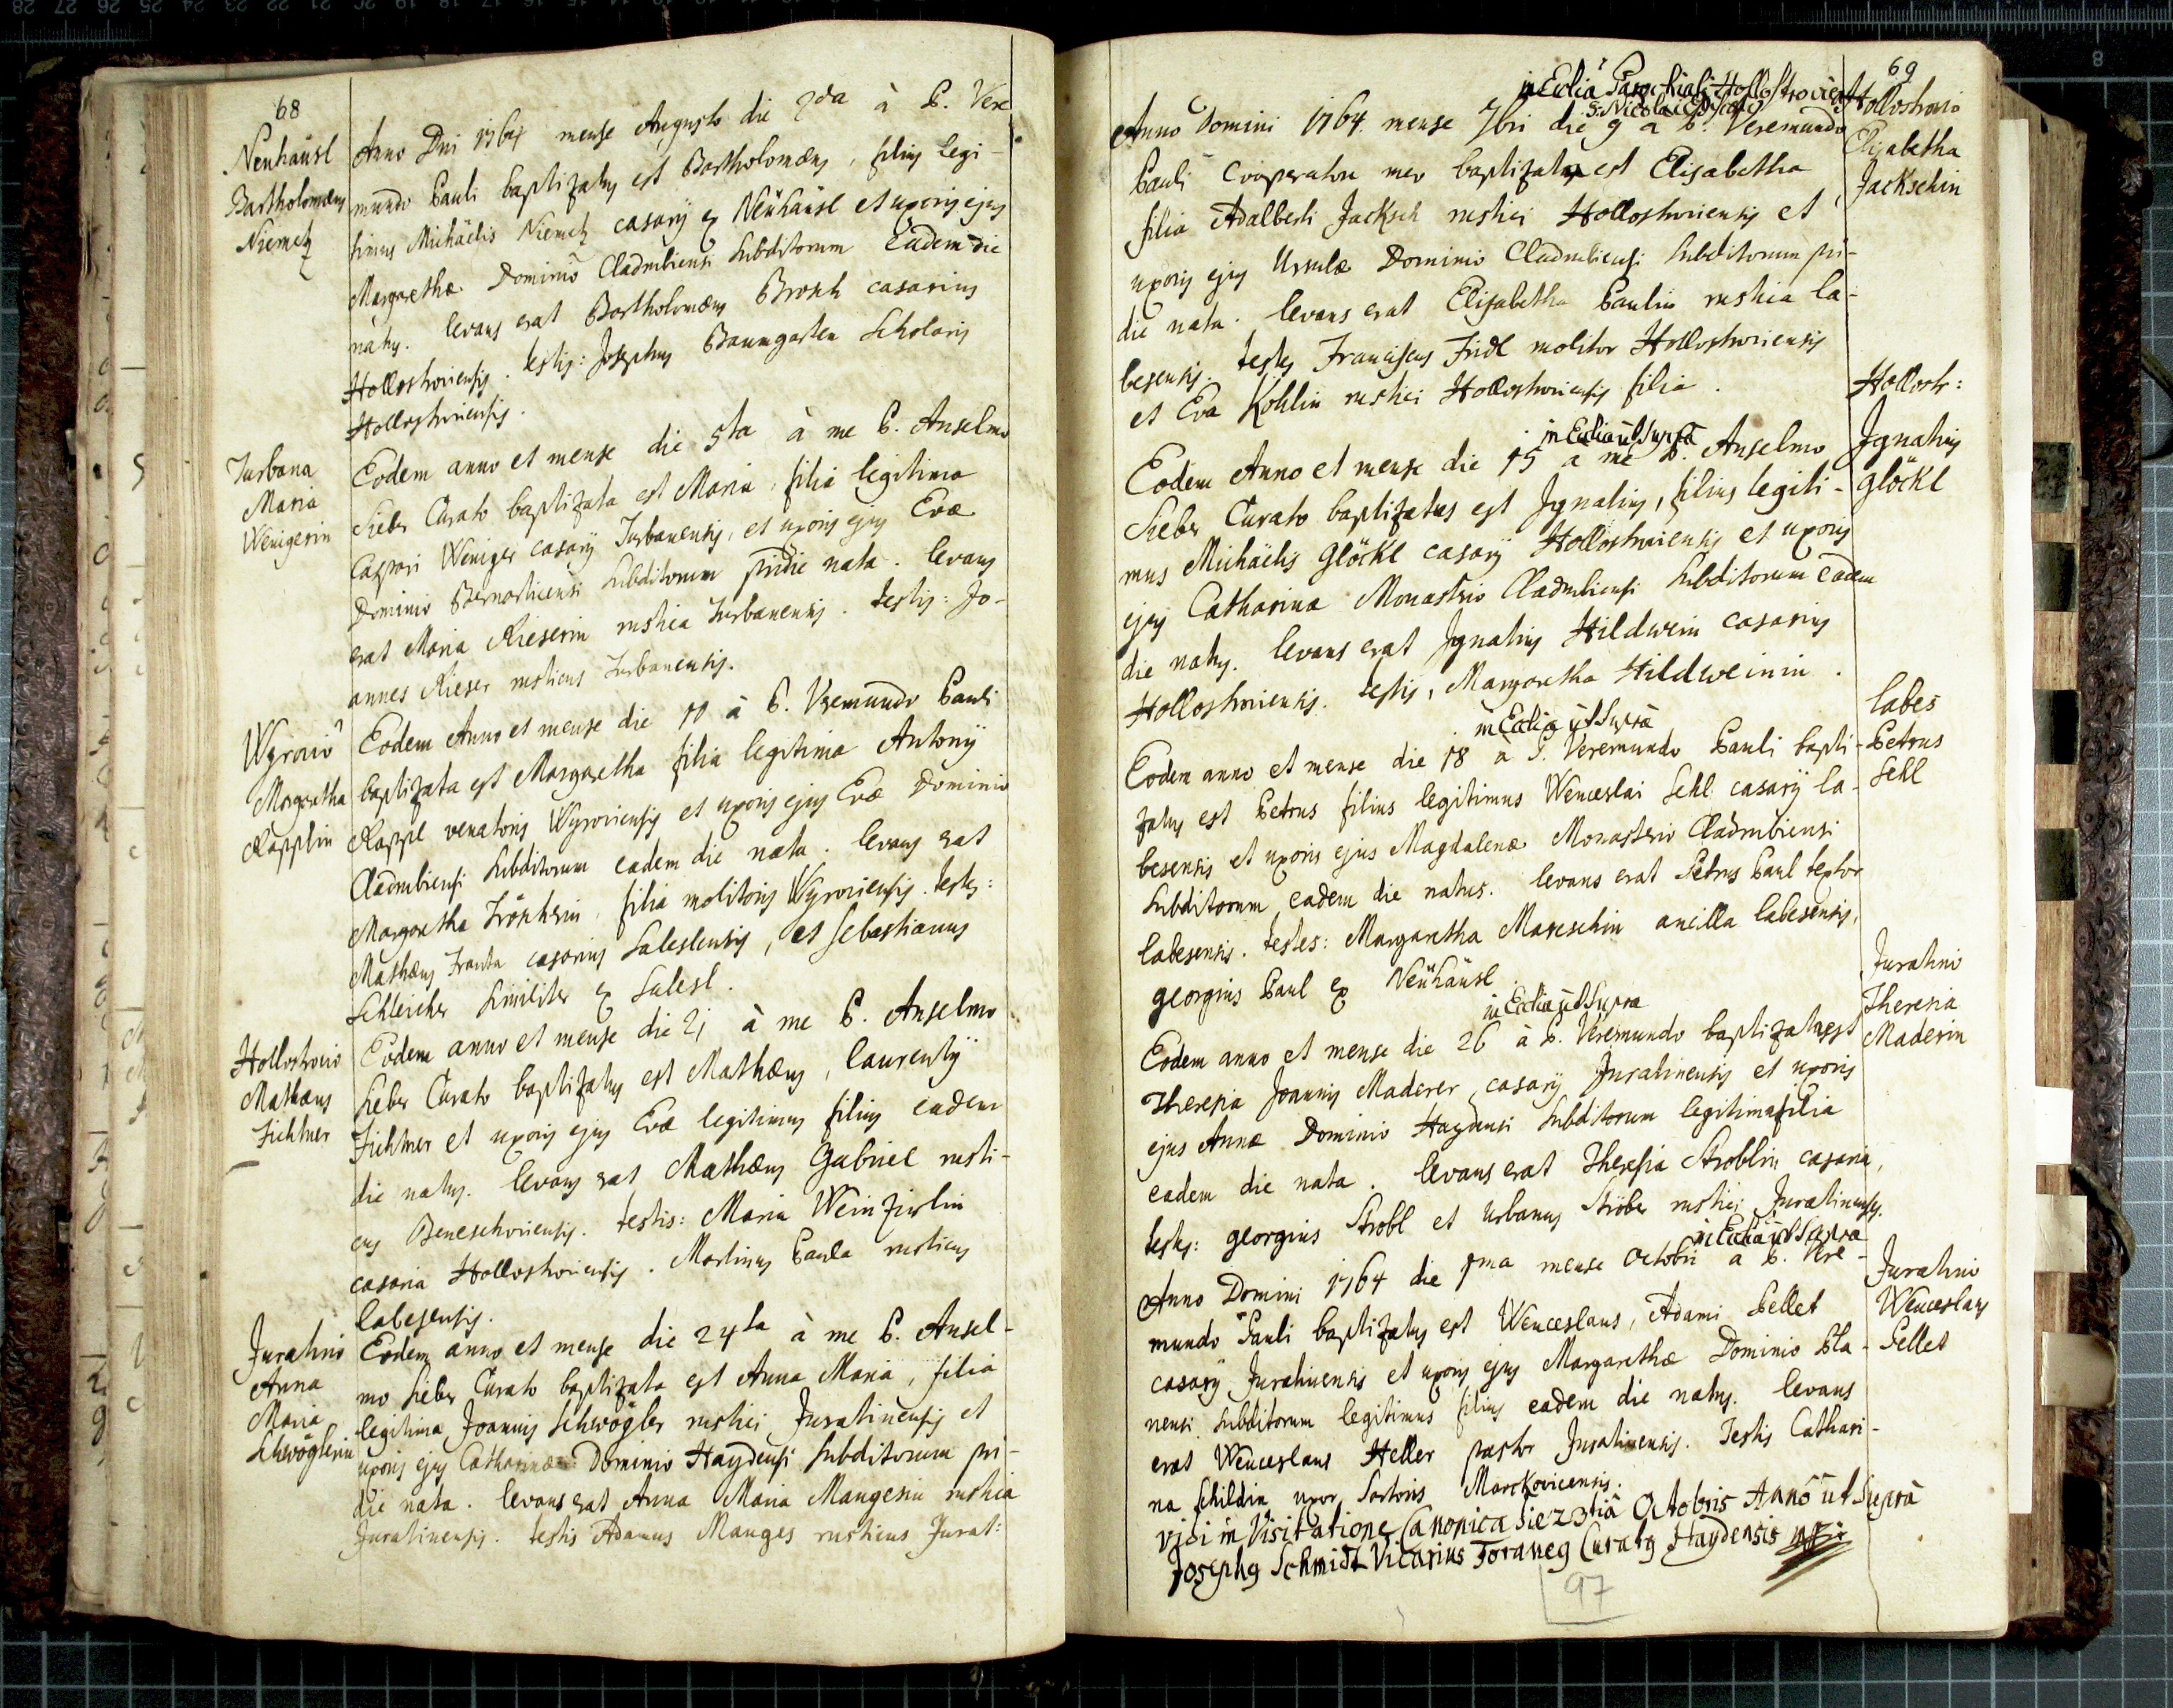 68
Neuhäusl
Bartholomæus
Niemetz
Anno Dni 1764 mense Augusto die 2da à P. Vere
mundo Pauli baptizatus est Bartholomæus, filius legi-
timus Michäelis Niemetz casarij ex Neühäusl et uxoris ejus
Margarethæ Dominio Cladrubiensi subditorum eâdem die
natus. levans erat Bartholomæus Brokh casarius
Hollostroviensis. testis: Josephus Baumgarten scholaris
Hollostroviensis.
Turbana
Maria
Wenigerin
Eodem anno et mense die 5ta à me P. Anselmo
Sieber Curato baptizata est Maria, filia legitima
Caspari Weniger casarij Turbanensis, et uxoris ejus Evæ
Dominio Bernarticensi subditorum pridie nata. levans
erat Maria Rieserin rustica Turbanensis. testis: Jo-
annes Rieser rusticus Turbanensis.
Wyrowo
Margaretha
Rapplin
Eodem Anno et mense die 10 à P. Veremundo Pauli
baptizata est Margaretha filia legitima Antonij
Rappl venatoris Wyroviensis et uxoris ejus Evæ Dominio
Cladrubiensi subditorum eadem die nata. levans erat
Margaretha filia molitoris Wyroviensis. testes:
Mathæus Franta casarius Saleslensis, et Sebastianus
Schleicher similiter ex Salesl.
Hollostrovio
Mathæus
Fichtner
Eodem anno et mense die 21 à me P. Anselmo
Sieber Curato baptizatus est Mathæus, Laurentij
Fichtner et uxoris ejus Evæ legitimus filius eadem
die natus. levans erat Mathæus Gabriel rusti-
cus Beneschoviensis. testis: Maria Weinzirlin
casaria Hollostroviensis. Martinus Paula rusticus
labesensis.
Juratino
Anna
Maria
Schwöglerin
Eodem anno et mense die 24ta à me P. Ansel-
mo Sieber Curato baptizata est Anna Maria, filia
legitima Joannis Schwögler rustici Juratinensis et
uxoris ejus Catharinæ Dominio Haydensi subditorum pri-
die nata. levans erat Anna Maria Mangesin rustica
Juratinensis. testis Adamus Manges rusticus Jurat:
69
in Ecclia Parochiali Hollostroviensi
S: Nicolai Episcopi
Hollostrovio
Elisabetha
Jackschin
Anno Domini 1764 mense 7bri die 9 a P. Veremundo
Pauli Cooperatore meo baptizata est Elisabetha
filia Adalberti Jacksch rustici Hollostroviensis et
uxoris ejus Ursulæ Dominio Cladrubiensi subditorum pri-
die nata. levans erat Elisabetha Paulin rustica la-
besensis. testes Franciscus Fridl molitor Hollostroviensis
et Eva Köhlin rustici Hollostroviensis filia.
Hollostr:
Jgnatius
Glöckl
in Ecclia ut Supra
Eodem Anno et mense die 15 a me P. Anselmo
Sieber Curato baptizatus est Jgnatius, filius legiti-
mus Michäelis Glöckl casarij Hollostroviensis et uxoris
ejus Catharinæ Monastrio Cladrubiensi subditorum eadem
die natus. levans erat Jgnatius Hildwein casarius
Hollostroviensis. testis, Margaretha Hildweinin.
labes
Petrus
Sehl
in Ecclia ut Supra
Eodem anno et mense die 18 a P. Veremundo Pauli bapti-
zatus est Petrus filius legitimus Wenceslai Sehl casarij la-
besensis et uxoris ejus Magdalenæ Monasterio Cladrubiensi
subditorum eadem die natus. levans erat Petrus Paul textor
labesensis. testes: Margaretha Mareschin ancilla labesensis,
georgius Paul ex Neühäusl.
Juratino
Theresia
Maderin
in Ecclia ut Supra
Eodem anno et mense die 26 à P. Veremundo baptizata est
Theresia Joannis Maderer casarij Juratinensis et uxoris
ejus Annæ Dominio Haydensi subditorum legitima filia
eadem die nata. levans erat Theresia Stroblin casaria,
testes: georgius Strobl et Urbanus Ströber rustici Juratinensis.
in Ecclia ut Supra
Juratino
Wenceslaus
Pellet
Anno Domini 1764 die 1ma mense octobri a P. Vere-
mundo Pauli baptizatus est Wenceslaus, Adami Pellet
casarij Juratinensis et uxoris ejus Margarethæ Dominio Pla-
nensi subditorum legitimus filius eadem die natus. levans
erat Wenceslaus Heller pastor Juratinensis. Testis Cathari-
na Schildin uxor Sartoris Marckovicensis.
Vidi in Visitatione Canonica die 23tiâ Octobris Anno ut Suprà
Josephus Schmidt Vicarius Foraneus Curatus Haydensis mpria
97